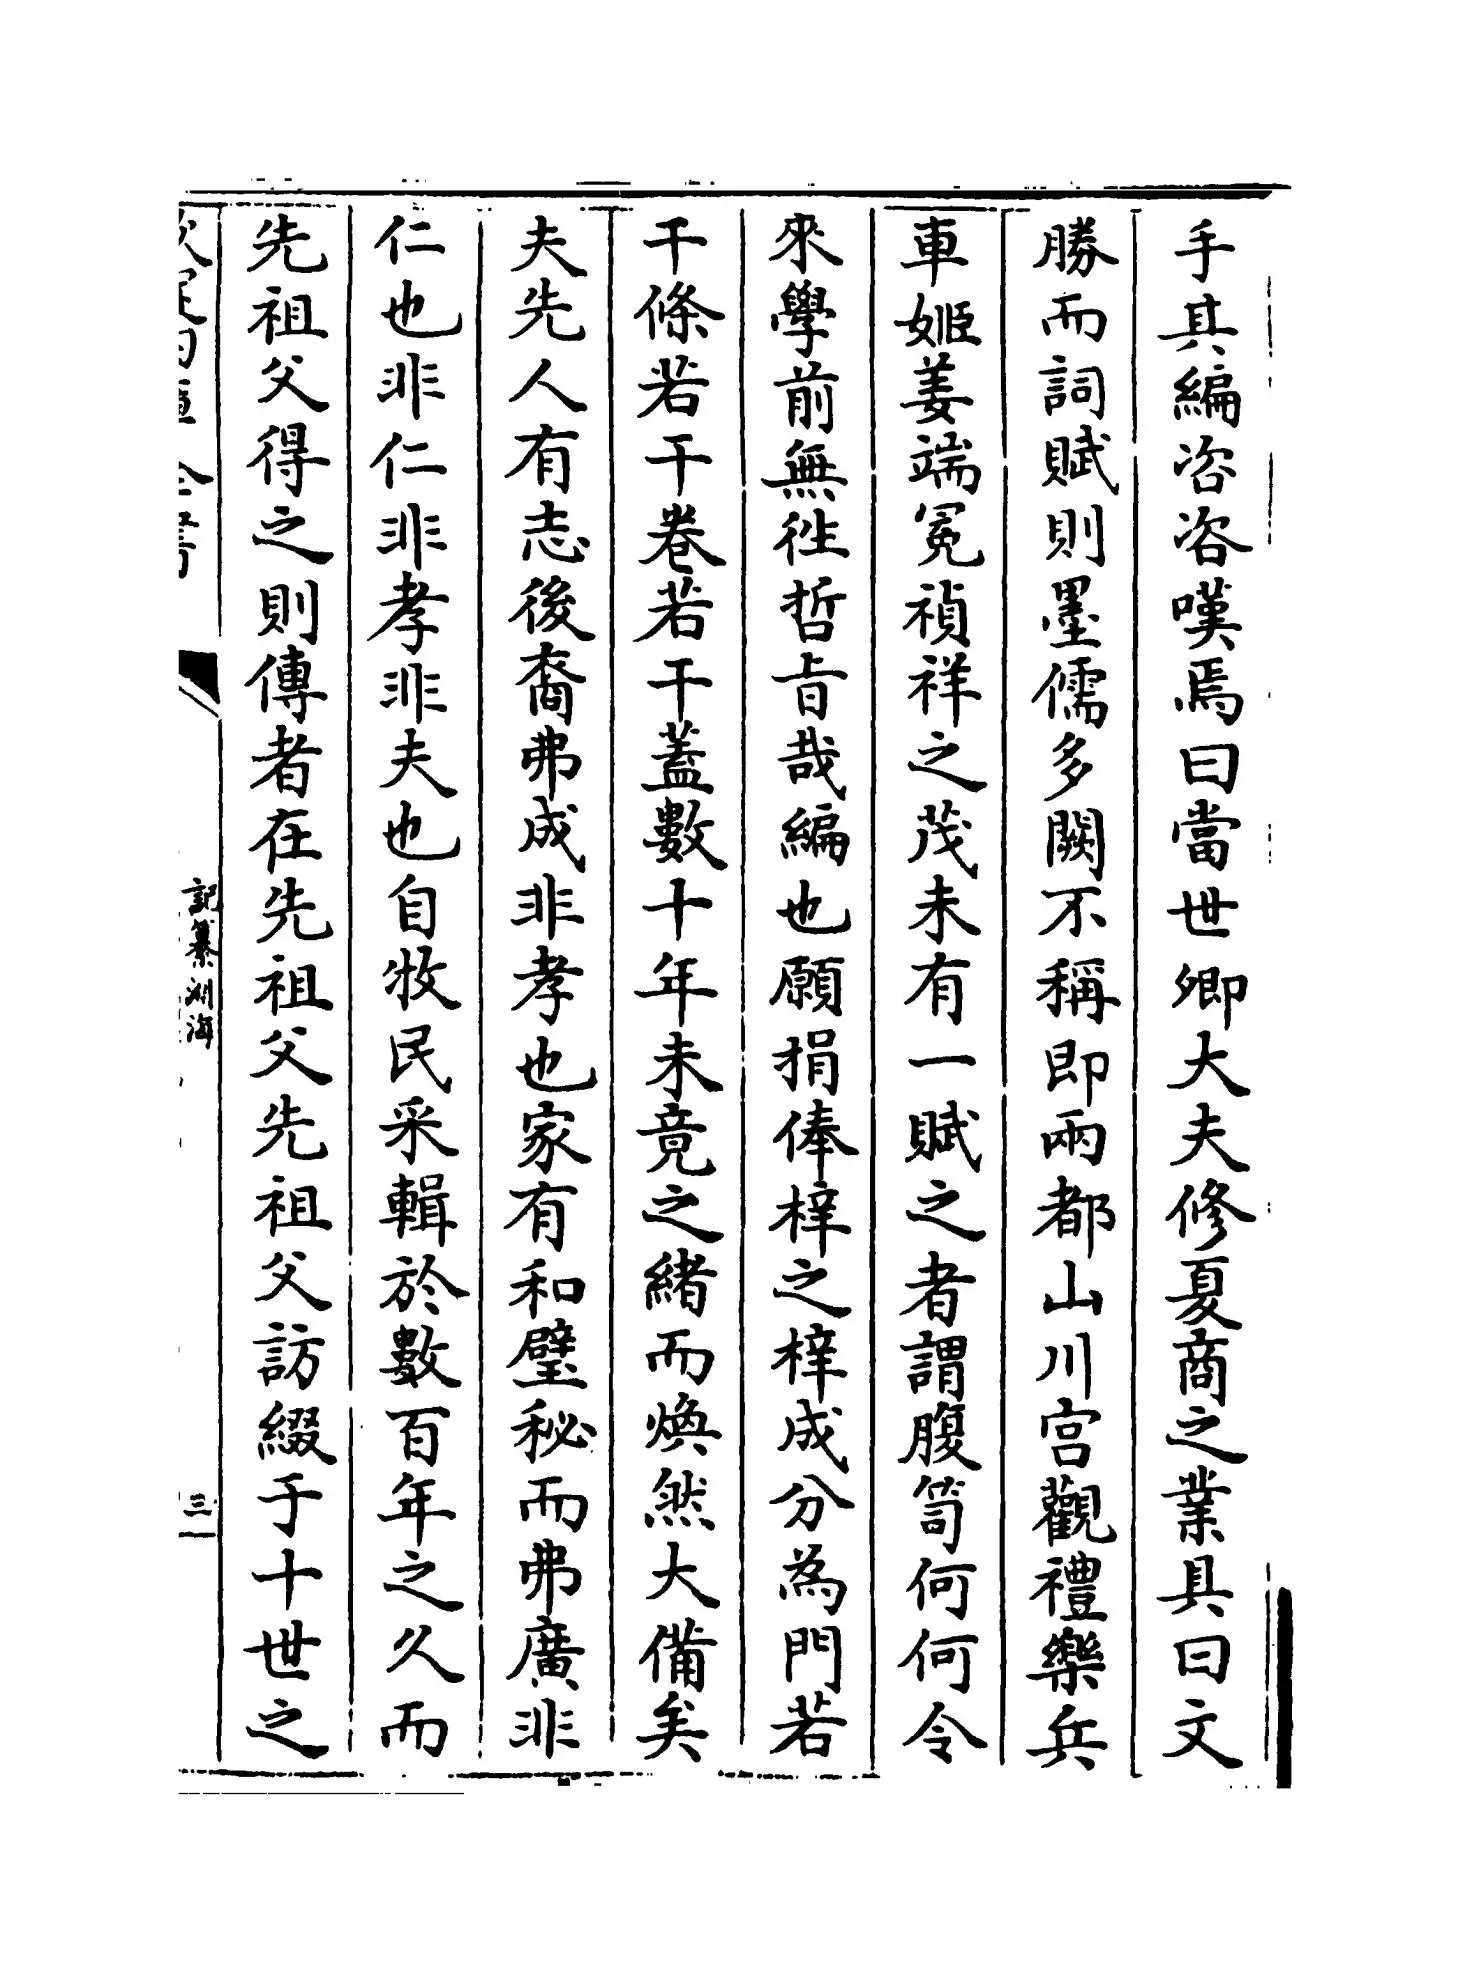 手其編咨咨嘆焉曰當世卿大夫修夏商之業具曰文
勝而詞賦則墨儒多闕不稱即兩都山川宫觀禮樂兵
車姬姜端冕禎祥之茂未有一賦之者謂腹笥何何令
來學前無徃哲旨哉編也願捐俸梓之梓成分為門若
干條若干卷若干蓋數十年未竟之緒而煥然大備矣
夫先人有志後裔弗成非孝也家有和璧秘而弗廣非
仁也非仁非孝非夫也自牧民采輯於數百年之久而
先祖父得之則傳者在先祖父先祖父訪綴于十世之
記纂淵海
三